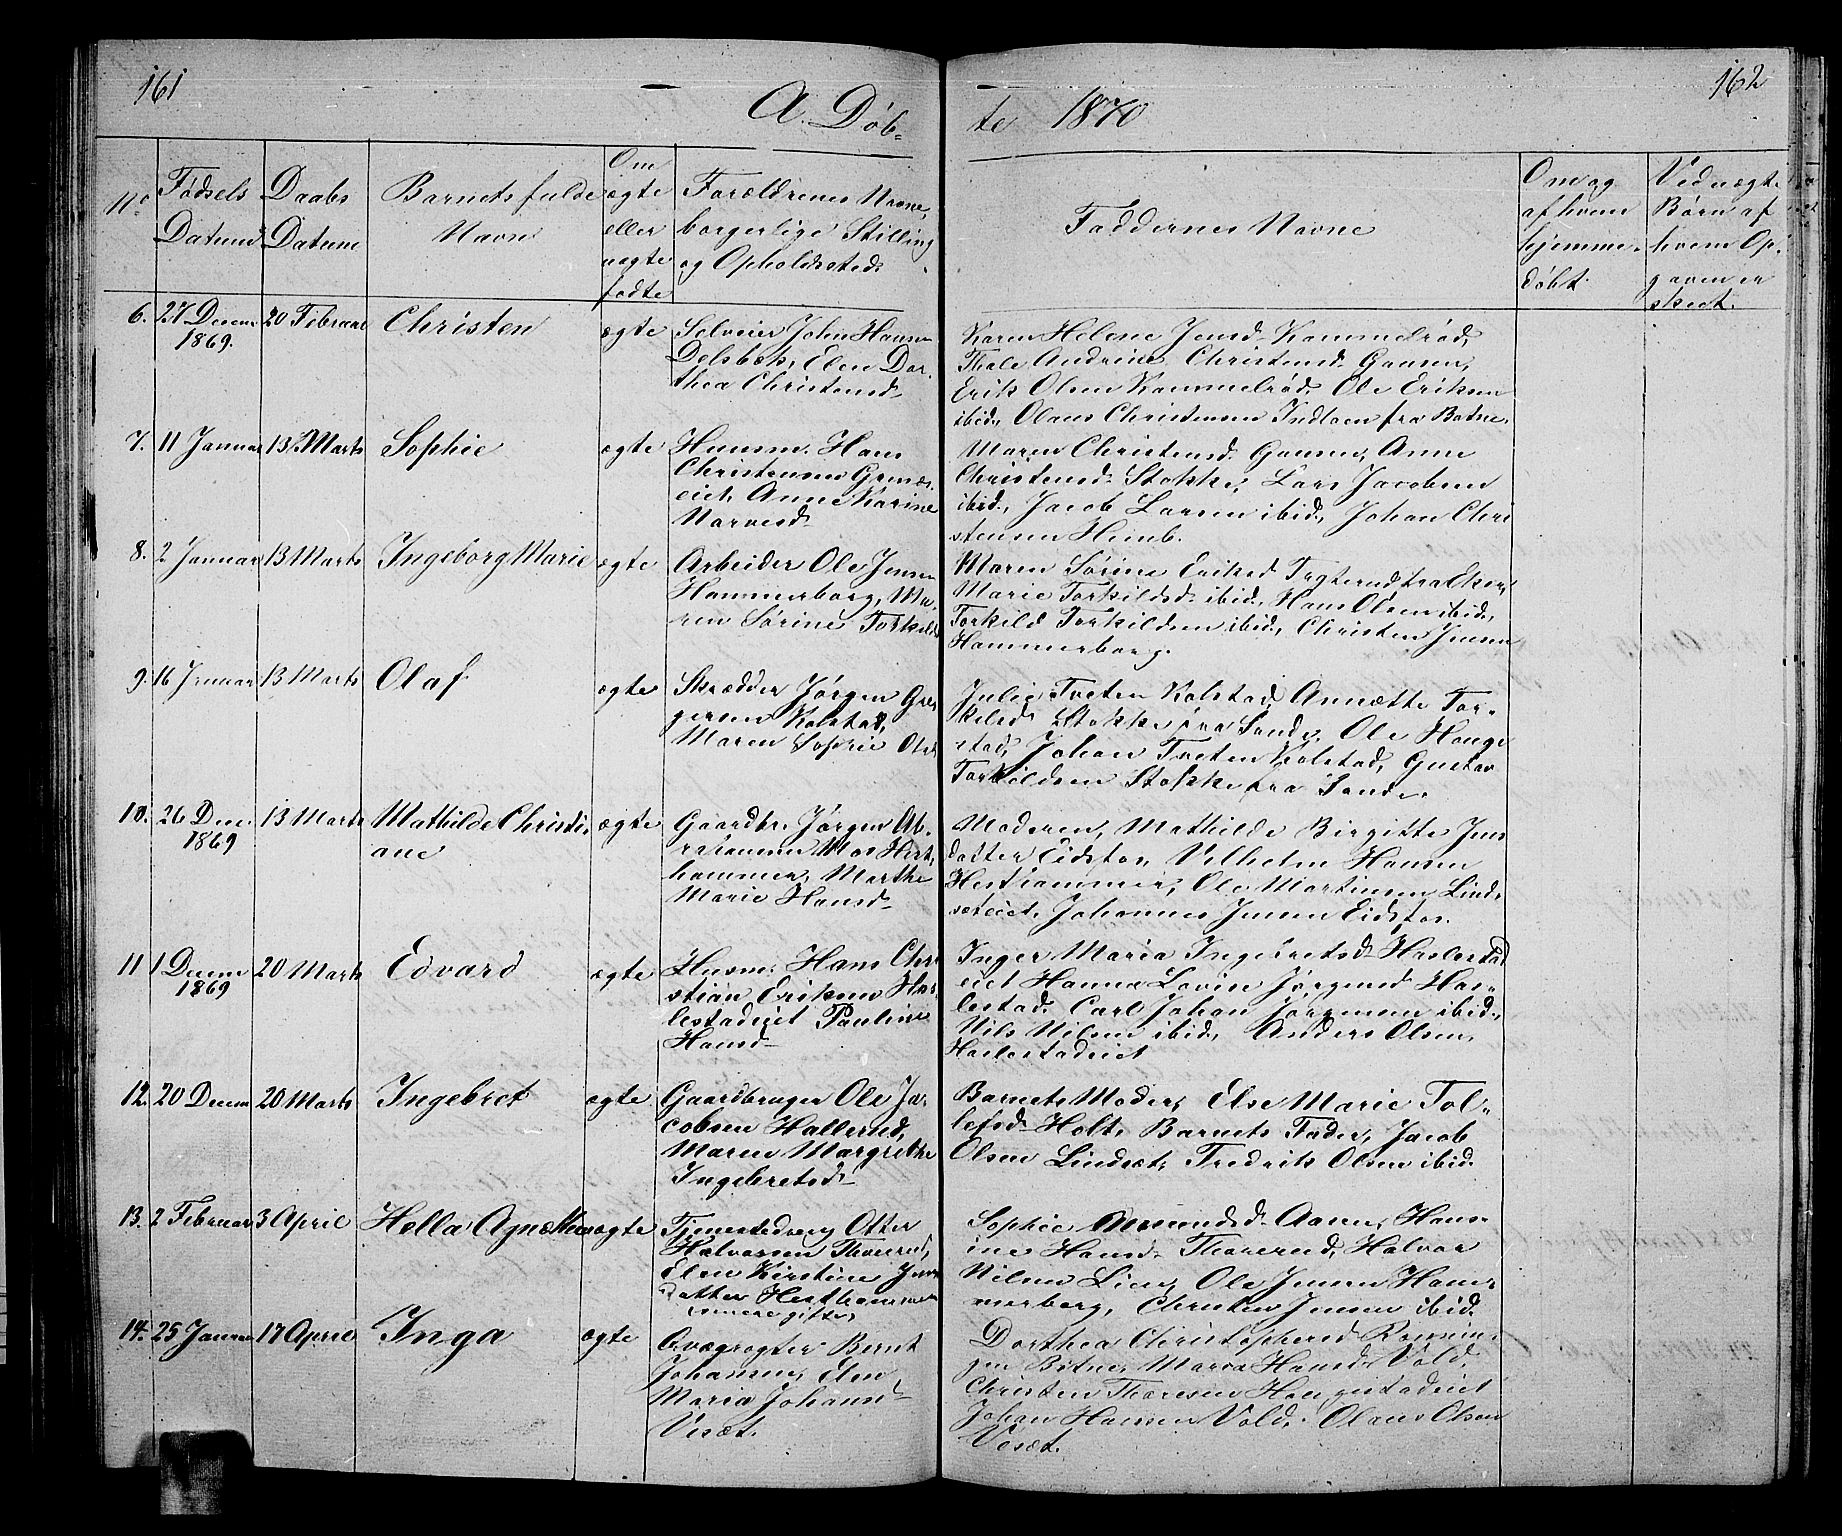 161
162
A. Døb-
te 1870
No
Fødsels
Datum
Daabs
Datum
Barnets fulde
Navn
Om
ægte
eller
uægte
fødte
Forældrenes Navne,
borgerlige Stilling
og Opholdssted.
Faddernes Navne
Om og
af hvem
hjemme-
døbt.
Ved uægte
Børn af
hvem Op-
gaven er
skeet.
6. 27 Decem 1869. 20 Februar Christen ægte
Selveier John Hansen
Delsbæk, Elen Dor-
thea Christensd.
Karen Helene Jensd. Kammelrød,
Thale Andrine Christensd. Gaasen,
Erik Olsen Kammelrød, Ole Eriksen
ibid, Olaus Christensen Indlaen fra Botne.
7. 11 Januar 13 Marts Sophie ægte
Huusm. Hans
Christensen
eiet, Anne Karine
Narvesd.
Maren Christensd. Gaasen, Anne
Christensd. Stokke, Lars Jacobsen
ibid., Jacob Larsen ibid, Johan Chri
stensen Humb.
8. 2 Januar 13 Marts Ingeborg Marie ægte
Arbeider Ole Jensen
Hammerborg, Ma-
ren Sørine Torkilds
Maren Sørine Eriksd
Marie Torkildsd. ibid, Hans Olsen ibid,
Torkild Torkildsen ibid, Christen Jensen
Hammerborg.
9. 16 Januar 13 Marts Olaf ægte
Skrædder Jørgen Gre-
gersen Kolstad,
Maren Sophie Olsd
Julie Tveten Kolstad, Annætte Tor-
kilsd. Stokke fra Sande. Ole Hauge
stad, Johan Tveten Kolstad, Gustav
Torkildsen Stokke fra Sande.
10. 26 Dec. 1869 13 Marts Mathilde Christi- ægte
ane
Gaardbr. Jørgen Ab-
rahamsen Moe Hest-
hammer, Marthe
Marie Hansd.
Moderen, Mathilde Birgitte Jens
datter Eidsfos, Vilhelm Hansen
Hesthammer, Ole Martinsen Lind-
sæteiet, Johannes Jensen Eidsfos.
11 1 Decem 1869 20 Marts Edvard ægte
Husm. Hans Chri
stian Eriksen Has-
lestadeiet Pauline
Hansd.
Inger Maria Ingebretsd. Haslestad
eiet Hanna Lovise Jørgensd Has-
lestad, Carl Johan Jørgensen ibid.,
Nils Nilsen ibid, Anders Olsen,
Haslestadeiet
12. 20 Decem 20 Marts Ingebret ægte
Gaardbruger Ole Ja-
cobsen Hallerud,
Maren Margrethe
Ingebretsd.
Barnets Moder, Else Marie Tol-
lefsd. Holt, Barnets Fader, Jacob
Olsen Lindsæt, Fredrik Olsen ibid.
13. 2 Februar 3 April Hella Agnethe uægte
Tjenestedreng Otter
Halvorsen Thorrud,
Elen Kirstine Jens-
datter Hesthammer
senere gifte
Sophie Aamundsd. Aasen, Hans-
ine Hansd. Thorerud, Halvor
Nilsen Lien, Ole Jensen Ham-
merborg, Christen Jensen ibid.
14. 25 Januar 17 April Inga ægte
Qvægrøgter Bernt
Johansen, Elen
Maria Johansd.
Vesæt.
Dorthea Christophersd
Botne, Maria Hansd. Vold,
Christen Thoresen Haugestadeiet
Johan Hansen Vold, Olaus Olsen
Vesæt.